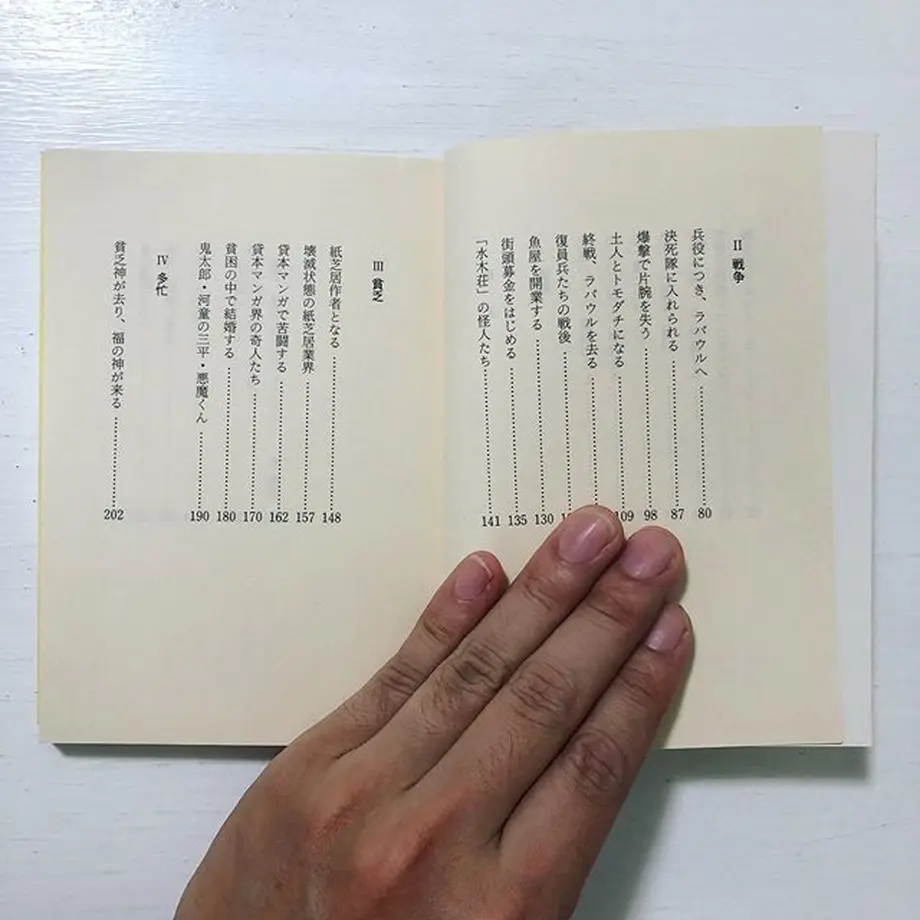 II 戦争
兵役につき、ラバウルへ………80
決死隊に入れられる………87
爆撃で片腕を失う………98
土人とトモダチになる………109
終戦、ラバウルを去る………
復員兵たちの戦後………
魚屋を開業する………130
街頭募金をはじめる………135
「水木荘」の怪人たち………141
III 貧乏
紙芝居作者となる………148
壊滅状態の紙芝居業界………157
貸本マンガで苦闘する………162
貸本マンガ界の奇人たち………170
貧困の中で結婚する………180
鬼太郎・河童の三平・悪魔くん………190
IV 多忙
貧乏神が去り、福の神が来る………202